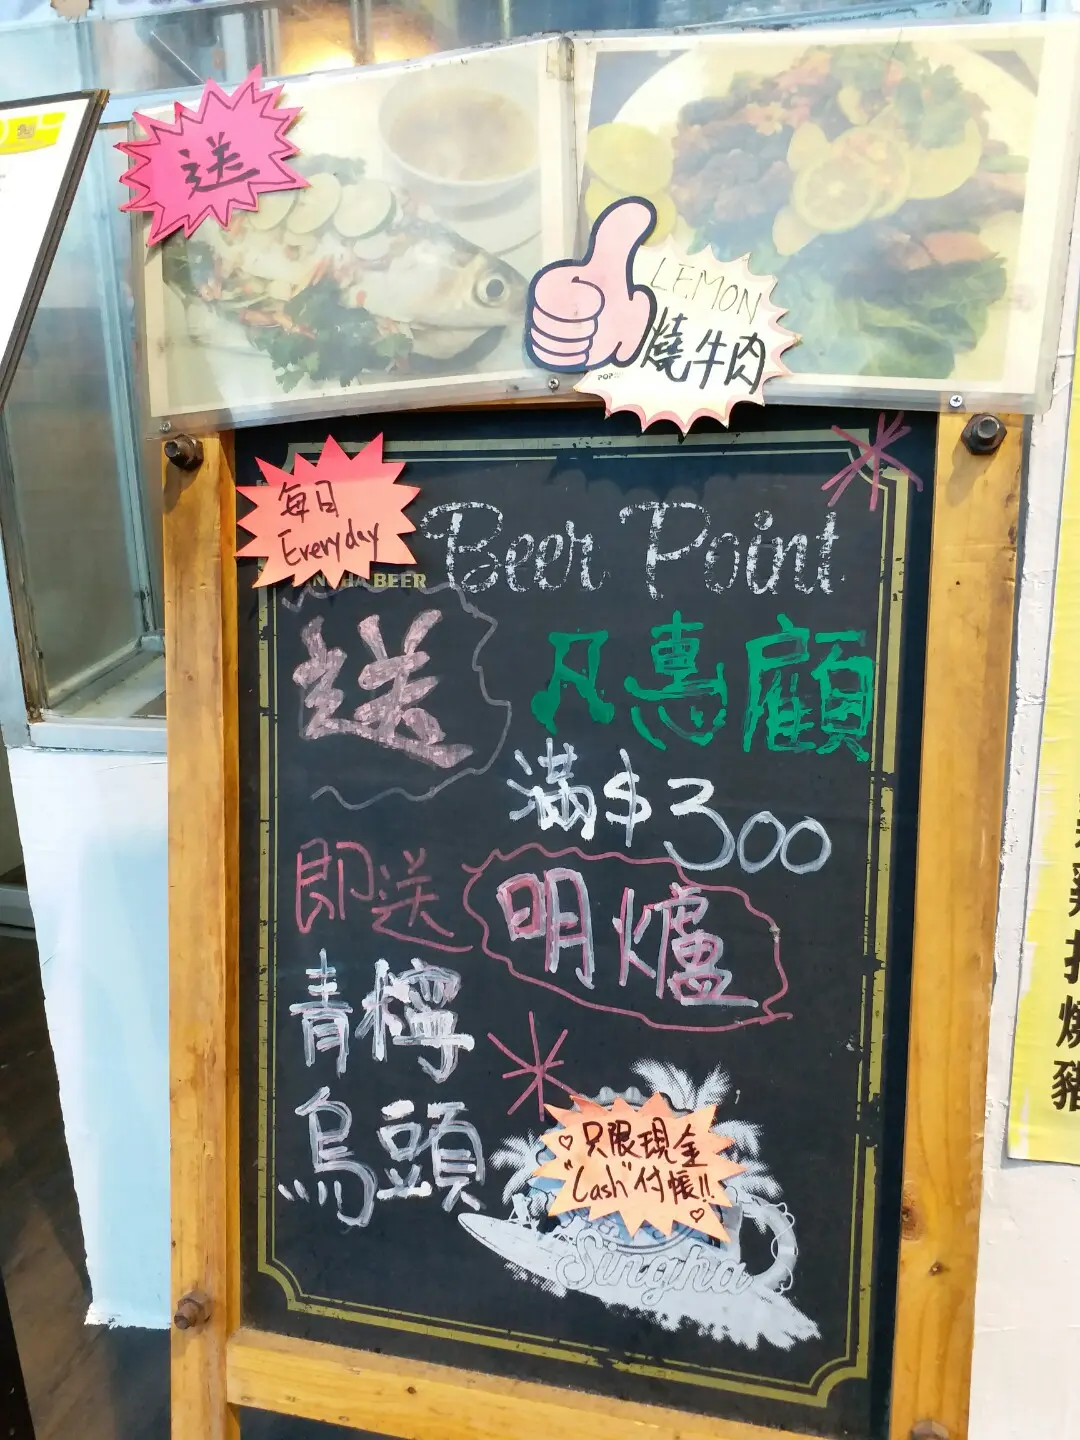 送
LEMON
燒牛肉
每日
Everyday
HA BEER
Beer Point
送
凡惠顧
滿$300
即送
明爐
青檸
烏頭
只限現金
"Cash"付帳!!
Singha
燒
豬